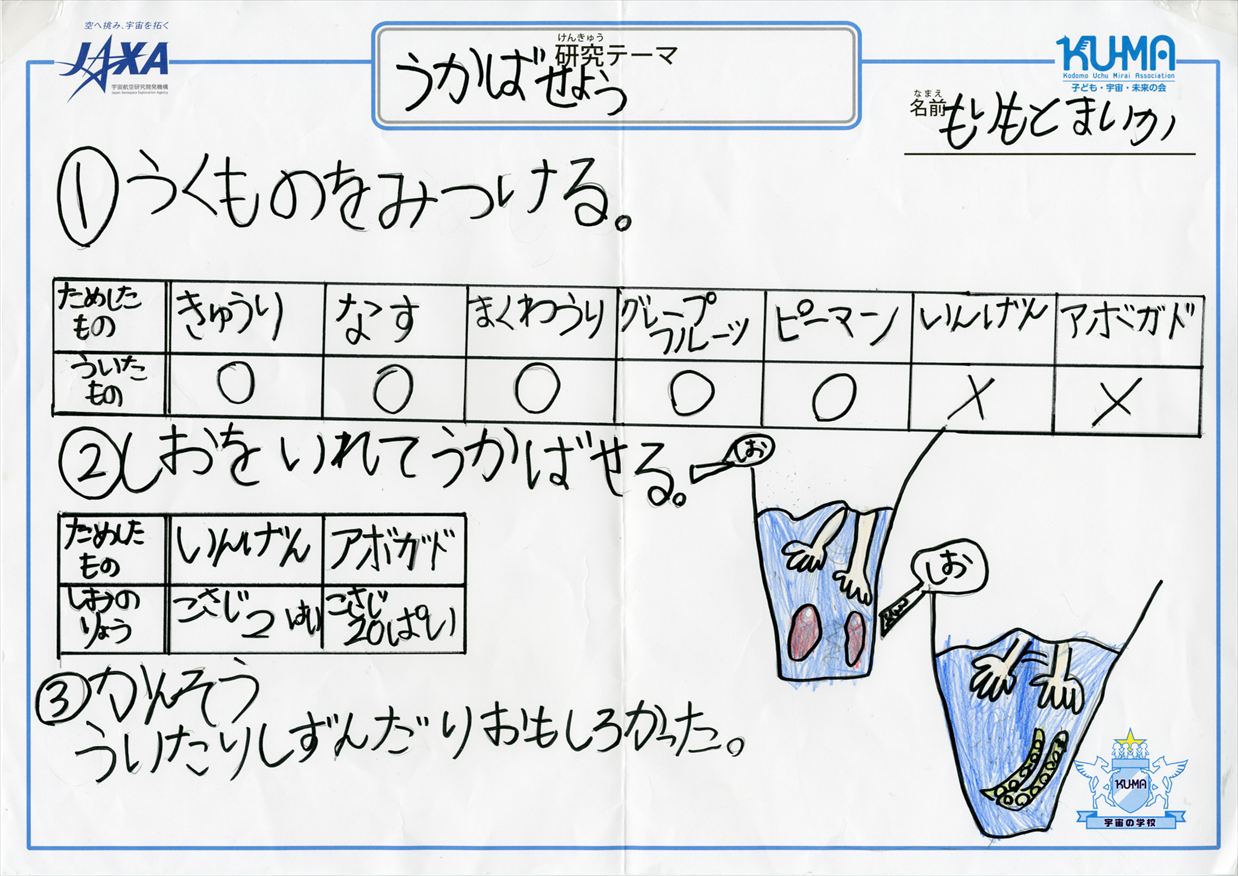 空へ挑み、宇宙を拓く
JAXA
宇宙航空研究開発機構
Japan Aerospace Exploration Agency
けんきゅう
研究テーマ
うかばせよう
KU-MA
Kodomo Uchu Mirai Association
子ども・宇宙・未来の会
なまえ
名前 もりもとまいか
①うくものをみつける。
ためしたもの きゅうり なす まくわうり グレープフルーツ ピーマン いんげん アボガド
ういたもの ○ ○ ○ ○ ○ × ×
②しおをいれてうかばせる。
しお
ためしたもの いんげん アボガド
しおのりょう こさじ2はい こさじ20ぱい
しお
③かんそう
ういたりしずんだりおもしろかった。
KU-MA
宇宙の学校